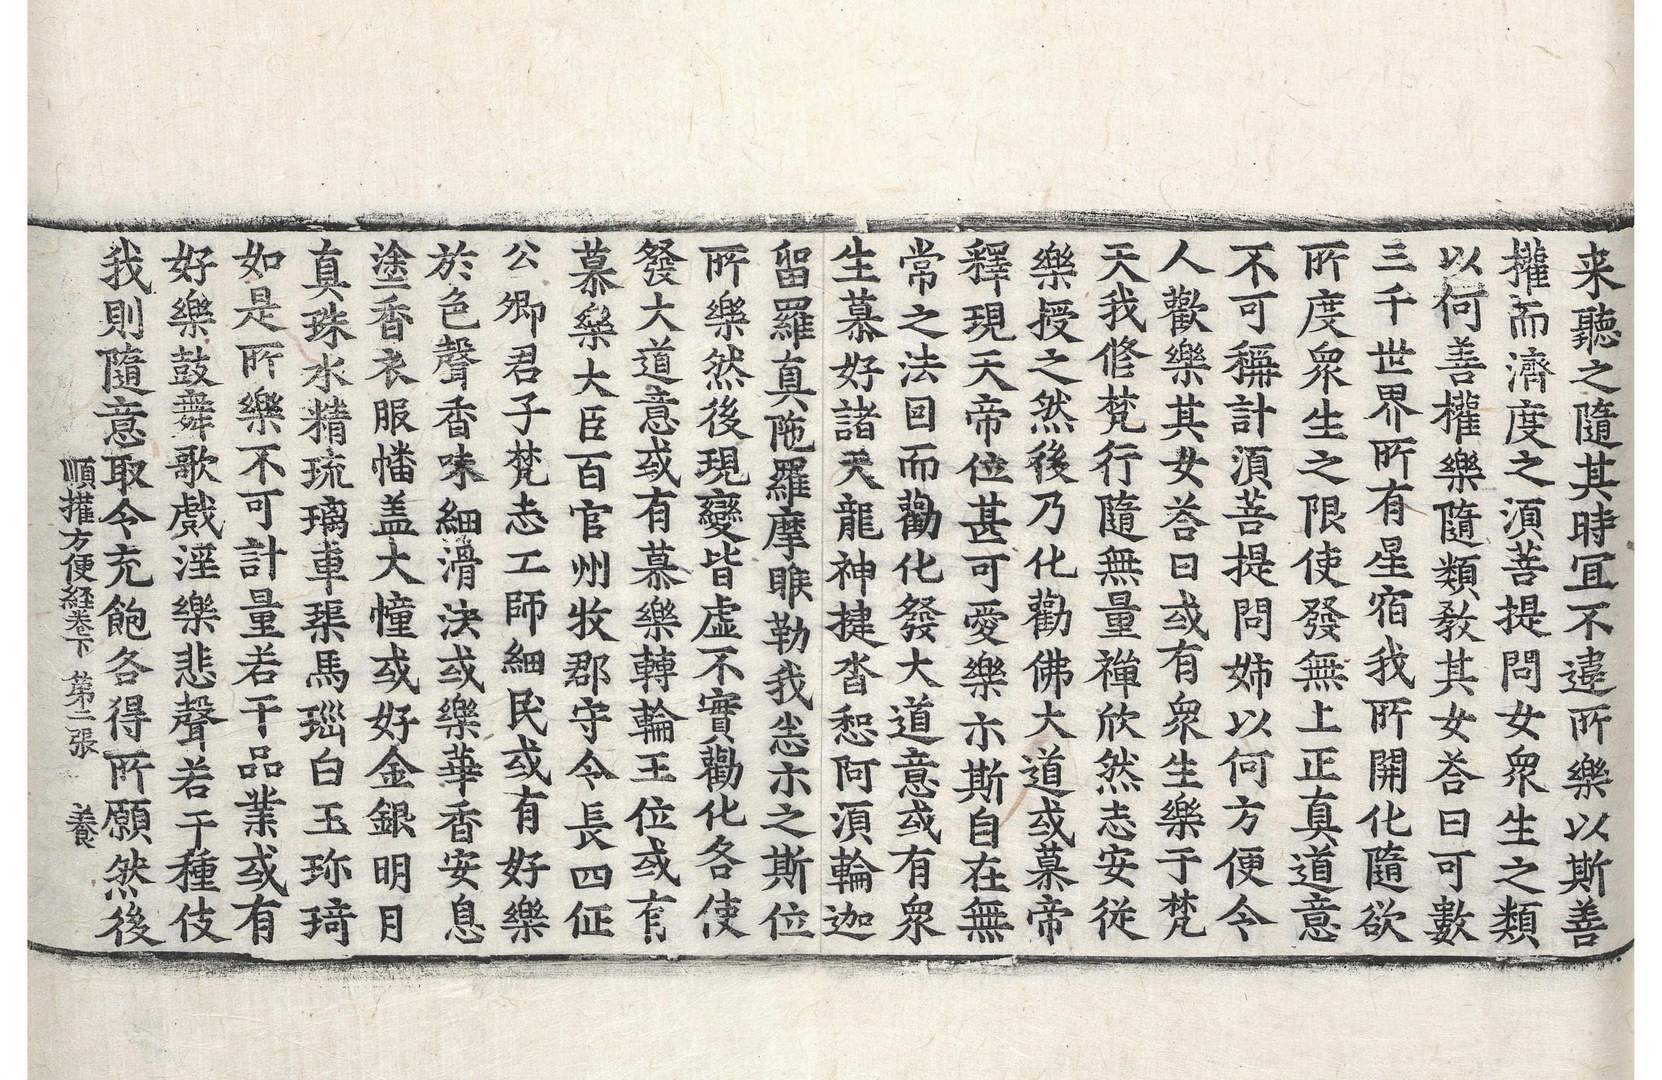 来聽之隨其時冝不違所樂以斯善
權而濟度之湏菩提問女衆生之類
以何善權樂隨類敎其女荅曰可數
三千世界所有星宿我所開化隨欲
所度衆生之限使發無上正真道意
不可稱計湏菩提問姊以何方便令
人歡樂其女荅曰或有衆生樂于梵
天我修梵行隨無量禪欣然志安従
樂授之然後乃化勸佛大道或慕帝
釋現天帝位甚可愛樂亦斯自在無
常之法回而勸化發大道意或有衆
生慕好諸天龍神揵沓惒阿湏輪迦
留羅真陁羅摩睺勒我悉亦之斯位
所樂然後現變皆虛不實勸化各使
發大道意或有慕樂轉輪王位或有
慕樂大臣百官州牧郡守令長四征
公卿君子梵志工師細民或有好樂
於色聲香味細滑決或樂華香安息
塗香衣服幡盖大幢或好金銀明月
真珠水精琉璃車璖馬瑙白玉珎琦
如是所樂不可計量若干品業或有
好樂鼓舞歌戲淫樂悲聲若干種伎
我則隨意取令充飽各得所願然後
順權方便経卷下 第二張 養